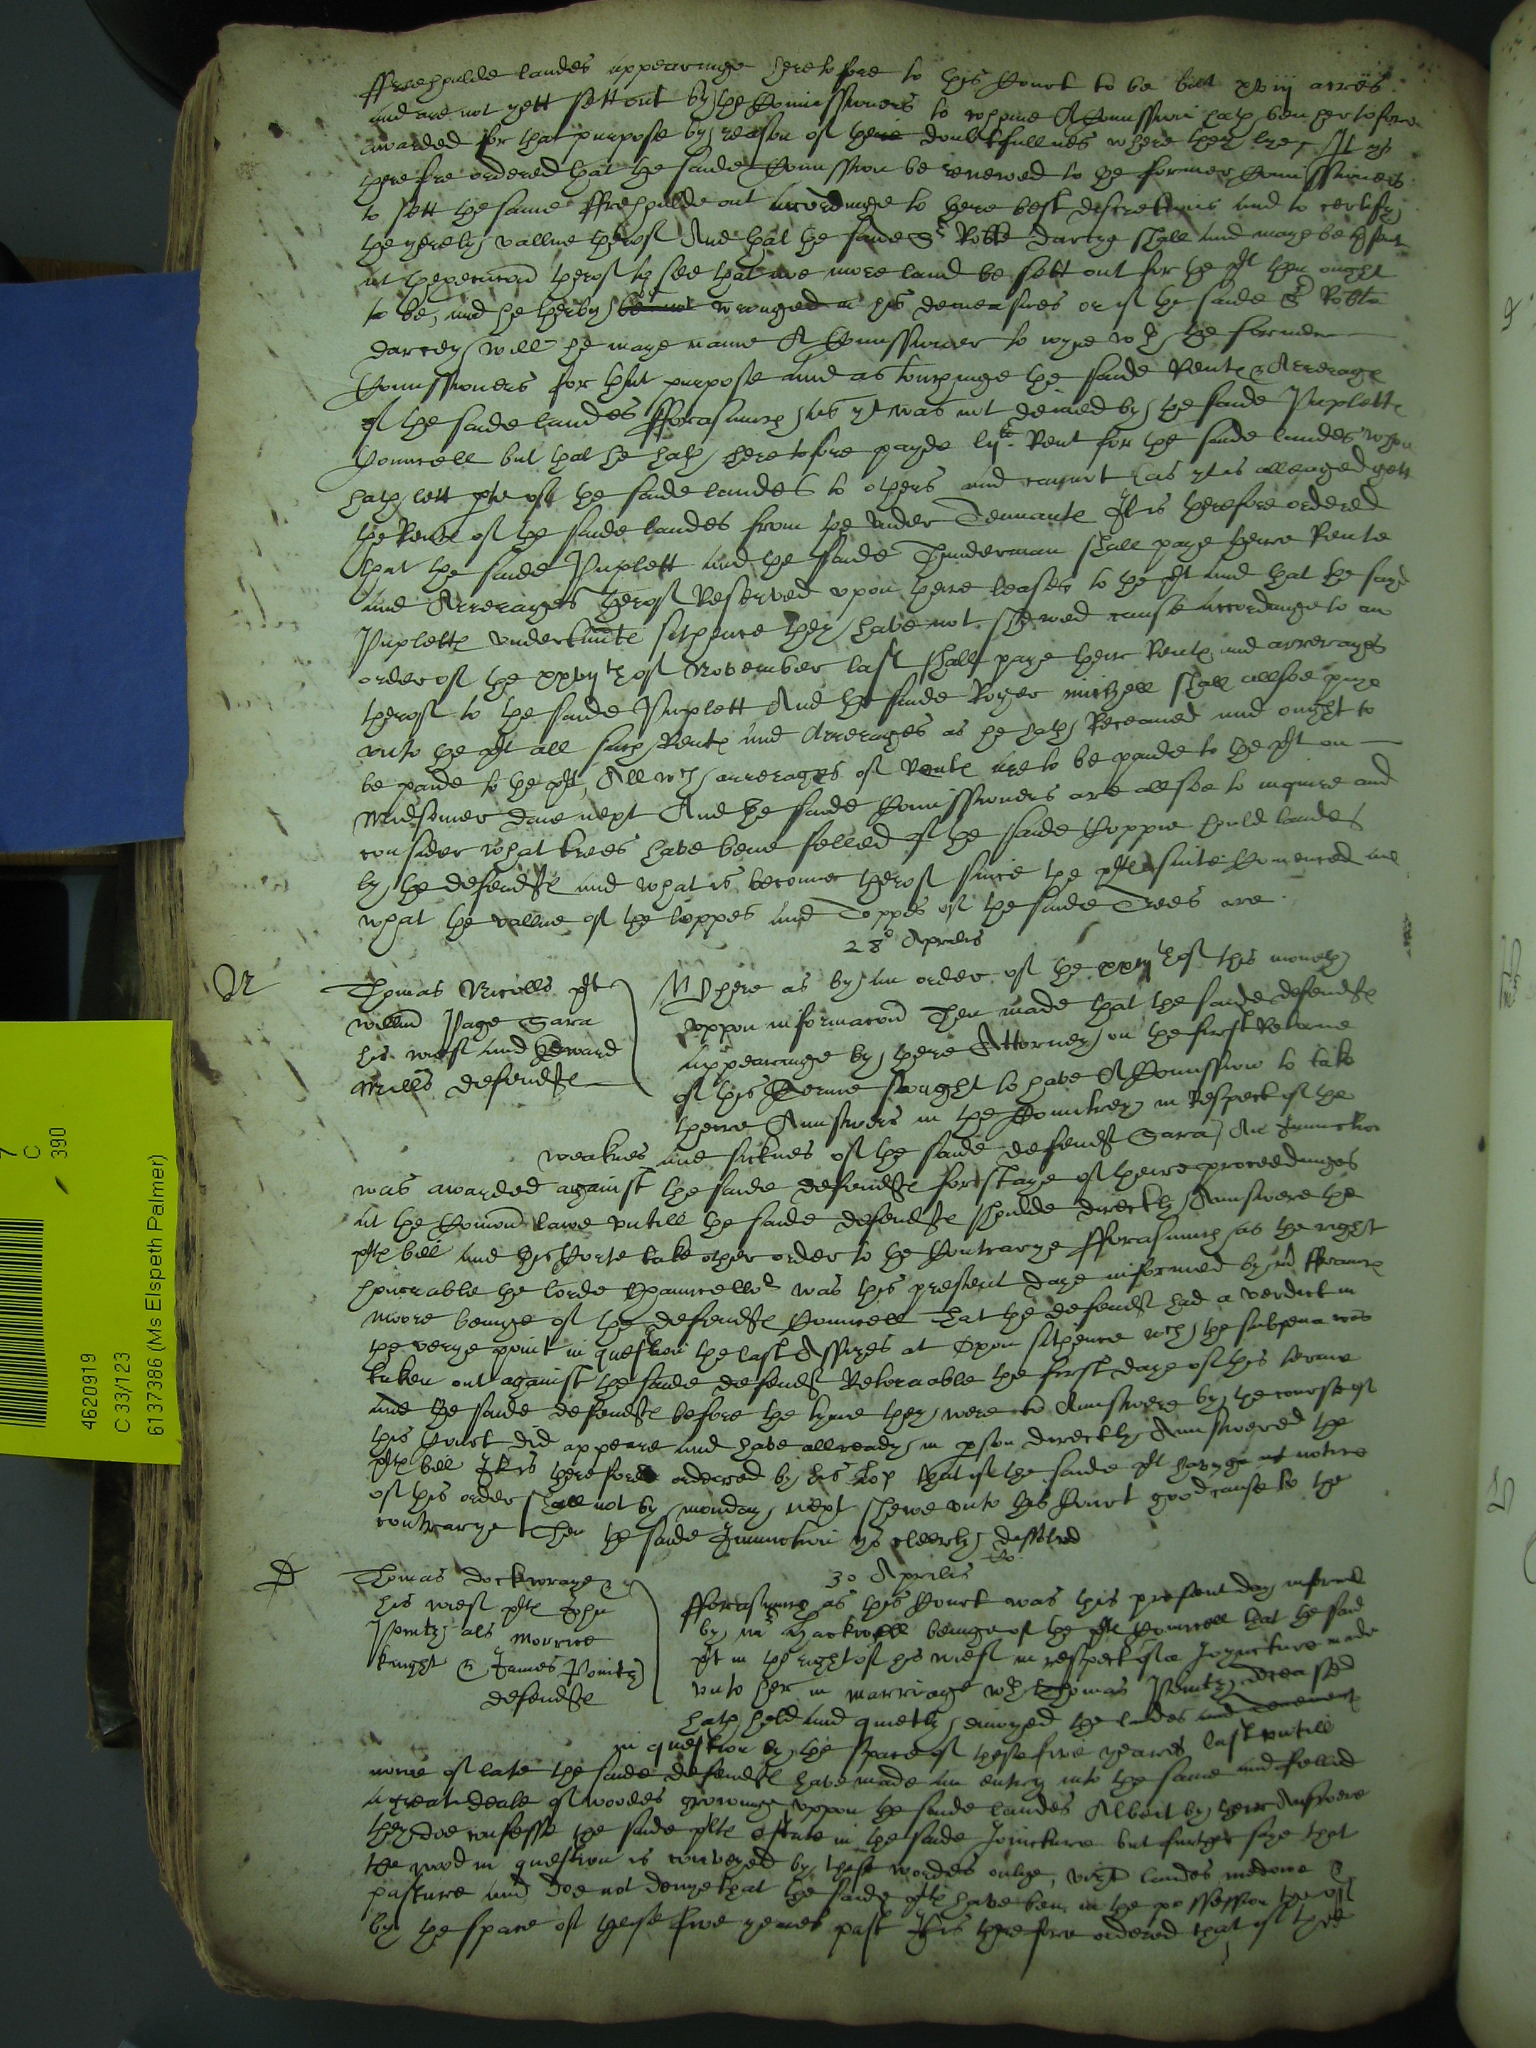 ffreehoulde landes appearinge heretofore to this Court to be but xviij acres
and are not yett sett out by the Comissioners to whome A Comission hath ben hertofore
awarded for that purpose by reason of there doubtfullnes where they lye, It ys
therefore ordered that the saide Comission be renewed to the former Comissioners
to sett the same ffreehoulde out accordinge to there best discretions and to certifye
the yerely vallue therof And that the saide Sr Robte Darcye shall and maye be
at thexecucon therof to see that noe more land be sett out for the plt then ought
to be, and he therby wronged in his demeasnes or if the saide Sr Robte
Darcey will he maye name A Comissioner to ioyne wth the former
Comissioners for that purpose And as touchinge the saide Rente & Arrerage
of the saide landes fforasmuch as yt was not denied by the saide Puplette
Councell but that he hath heretofore payde Rent for the saide landes who
hath lett pte of the saide landes to others and cannot (as yt is alleaged) gett
the Rente of the saide landes from the vnder Tennante It is therefore ordered
that the saide Puplett and the saide Thunderman shall paye theire Rente
and Arrerages therof Reserved vpon theire leases to the plt and that the sayd
Puplette vndertennte sithence they have not shewed cause accordinge to an
order of the xxvjth of November last shall paye theire Rente and arrerages
therof to the saide Puplett And the saide Roger Mitchell shall allsoe paye
vnto the plt all such Rente and Arrerages as he hath Receaved and ought to
be paide to the plt, All wch arrerages of Rente are to be paide to the plt on
Midsomer daie next And the saide Comissioners are allsoe to inquire and
consider what trees have bene felled of the saide Coppie hould landes
by the defendte and what is become therof since the plte suite Comenced and
what the vallue of the loppes and Toppes of the saide Trees are
28o Aprilis
N
Thomas Nicolls plt
Willm Page Sara
his wief and Edward
Mills defendte
Where as by an order of the xxvjth of this moneth
vppon informacon Then made that the saide defendte
appearinge by there Attorney on the first Retorne
of this Terme sought to have A Comission to take
theire Answeres in the Countrey in Respect of the
weaknes and sicknes of the saide defendt Sara, An Iniunction
was awarded against the saide defendte for staye of theire proceedinges
at the Comon lawe vntill the saide defendte shoulde directly Answere the
plte bill and this Corte take other order to the Contrarye fforasmuch as the right
honorable the lorde Chauncellor was this present daye informed by mr ffraunce
Moore beinge of the defendte Councell That the defendte had a verdict in
the verye point in question the last Assizes at Oxon sithence wch the subpena was
taken out against the saide defendte Retornable the first daye of this terme
and the saide defendte before the tyme they were to Answere by the course of
this Court did appeare and have allready in pson directly Answered the
plte bill It is therefore ordered by his Lop that if the saide plt havinge notice
of this order shall not by monday next shewe vnto this Court good cause to the
contrarye Then the saide Iniunction ys cleerly dissolved
30 Aprilis
D
Thomas Dockwraye &
his wief plte John
Pointz als Morrice
knight & James Pointz
defendte
fforasmuch as this Court was this present day informed
by mr Hackwell beinge of the plte Councell that the said
plt in the right of his wief in respect of a Joyncture made
vnto her in marriage wth Thomas Pointz deceased
hath held and quietly enioyed the landes and Tenemente
in question by the space of these five yeares last vntill
nowe of late the saide defendte have made an entry into the same and felled
a great deale of woodes growinge vppon the saide landes Albeit by their Answere
they doe confesse the saide plte estate in the saide Joincture but further saye that
the wood in question is conveyed by these wordes onlye, vizt landes medowe &
pasture and doe not denye that the saide plte have ben in the possession therof
by the space of these five yeares past It is therefore ordered that if the
7
C
390
4620919
C 33/123
6137386 (Ms Elspeth Palmer)